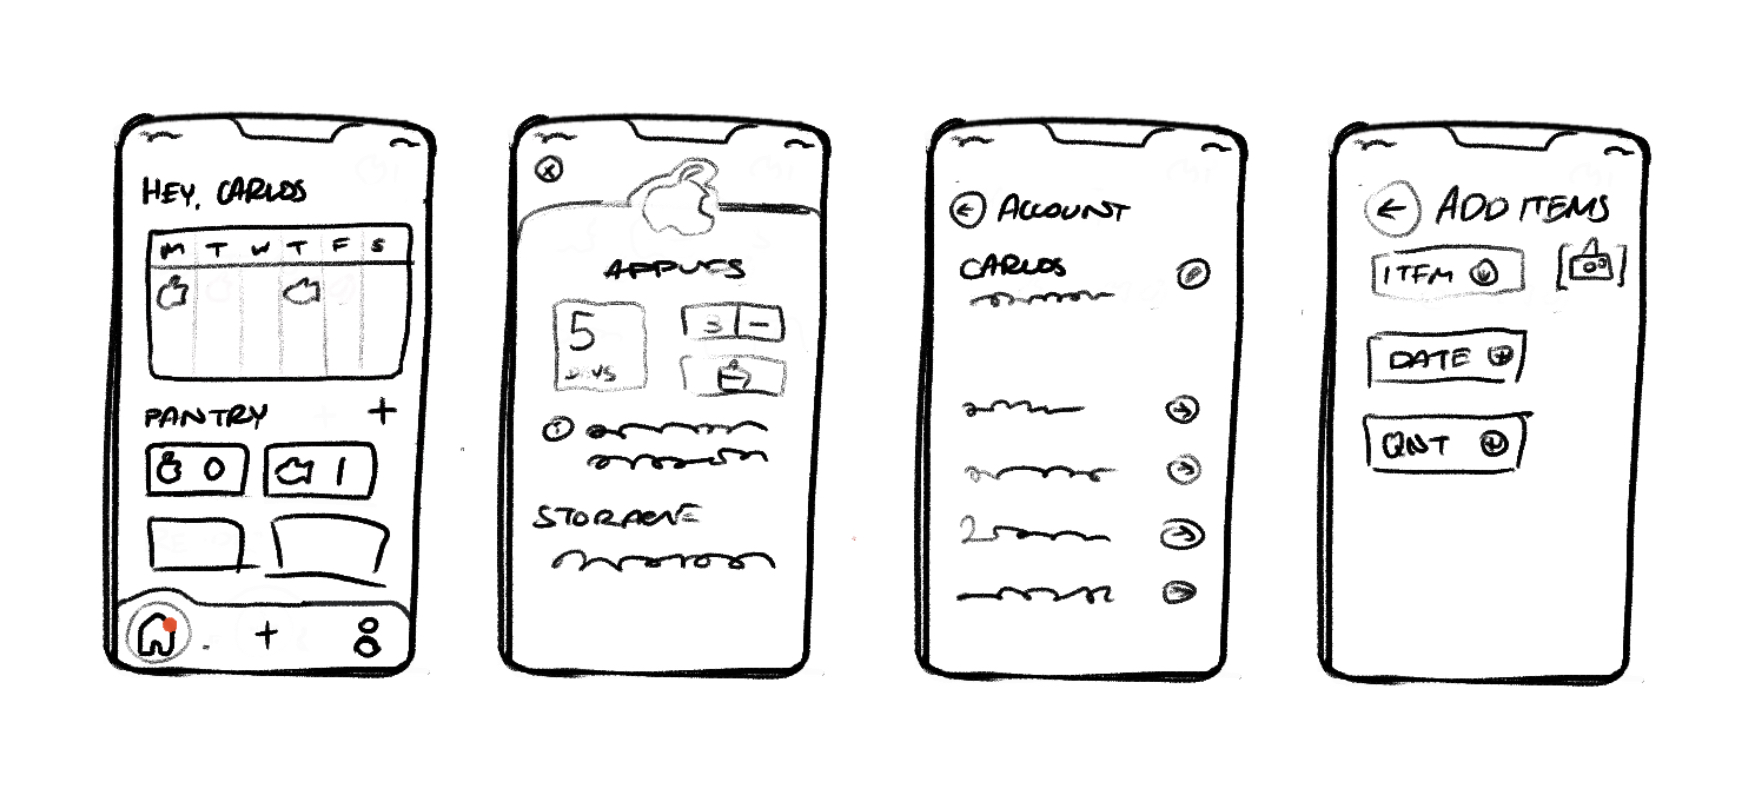 HEY, CARLOS
M T W T F S
PANTRY +
0 1
+
APPLES
5
3 -
DAYS
STORAGE
ACCOUNT
CARLOS
ADD ITEMS
ITEM
DATE
QNT